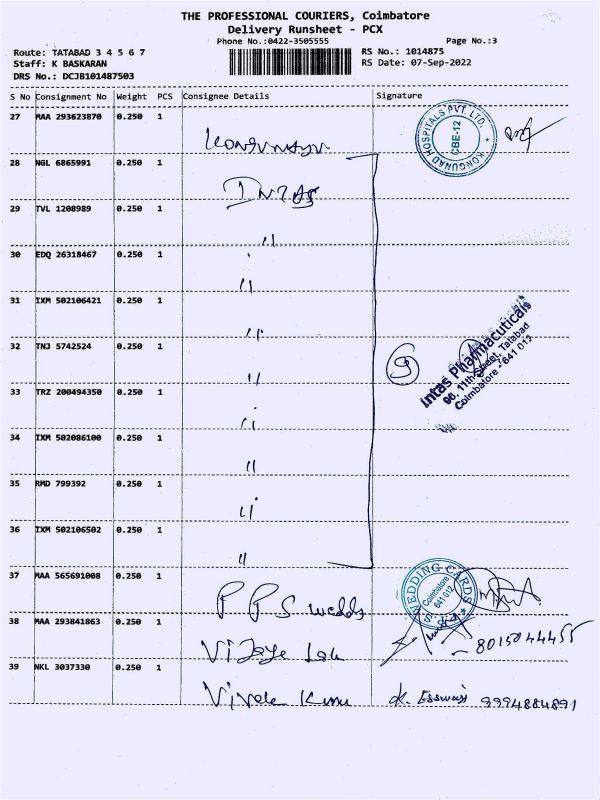 THE PROFESSIONAL COURIERS, Coimbatore
Delivery Runsheet - PCX
Phone No.:0422-3505555
Page No.:3
Route: TATABAD 3 4 5 6 7
Staff: K BASKARAN
DRS No.: DCJB101487503
RS No.: 1014875
RS Date: 07-Sep-2022
S No Consignment No Weight PCS Consignee Details Signature
27 MAA 293623870 0.250 1
KONGUNAD HOSPITALS PVT. LTD.
CBE-12
28 NGL 6865991 0.250 1
INTAS
29 TVL 1208989 0.250 1
"
30 EDQ 26318467 0.250 1
"
31 IXM 502106421 0.250 1
"
32 TNJ 5742524 0.250 1
"
Intas Pharmaceuticals
90, 11th Street, Tatabad
Coimbatore - 641 012
33 TRZ 200494350 0.250 1
"
34 IXM 502086100 0.250 1
"
35 RMD 799392 0.250 1
"
36 IXM 502106502 0.250 1
"
37 MAA 565691008 0.250 1
P P S wedds
WEDDING CARDS
Coimbatore
641 012
38 MAA 293841863 0.250 1
Vijaye
- 8015044455
39 NKL 3037330 0.250 1
Vivek
K. Esswari 9994884891